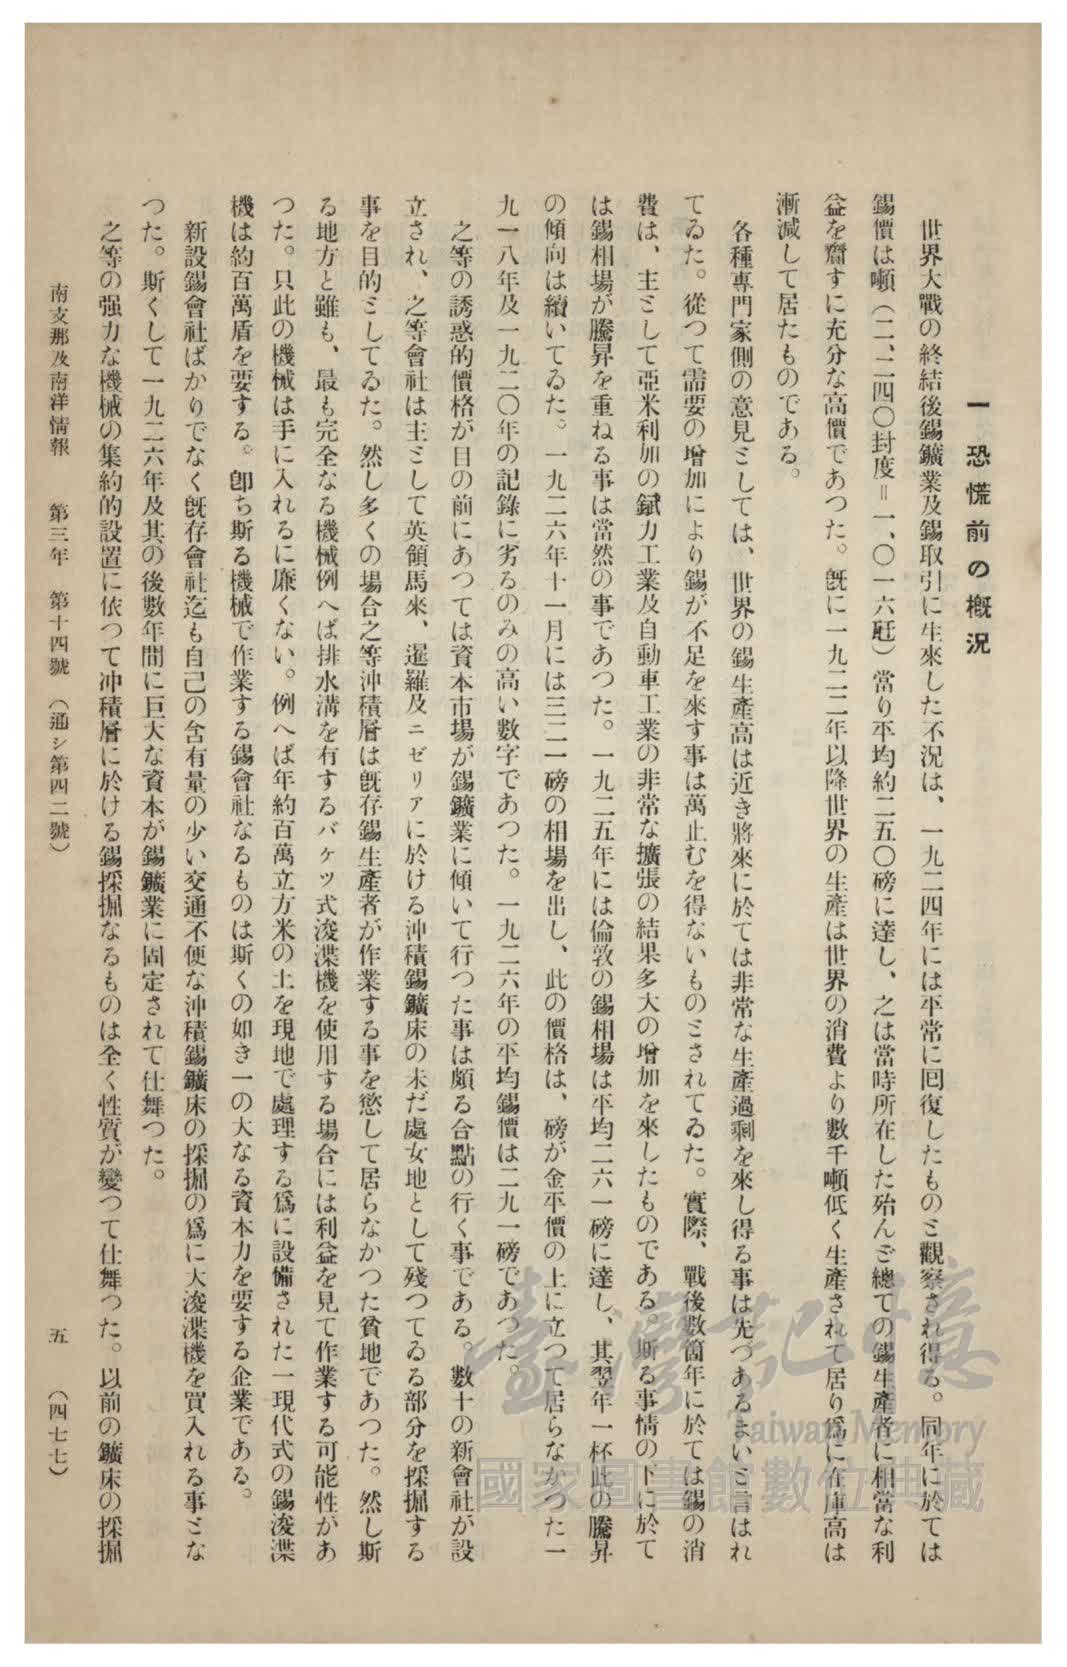 一 恐慌前の槪況
世界大戰の終結後錫鑛業及錫取引に生來した不況は、一九二四年には平常に回復したものと觀察され得る。同年に於ては
錫價は噸（二、二四〇封度＝一、〇一六瓩）當り平均約二五〇磅に達し、之は當時所在した殆んど總ての錫生產者に相當な利
益を齎すに充分な高價であつた。旣に一九二二年以降世界の生產は世界の消費より數千噸低く生產されて居り爲に在庫高は
漸減して居たものである。
各種專門家側の意見としては、世界の錫生產高は近き將來に於ては非常な生產過剩を來し得る事は先づあるまいと言はれ
てゐた。從つて需要の增加により錫が不足を來す事は萬止むを得ないものとされてゐた。實際、戰後數箇年に於ては錫の消
費は、主として亞米利加の錻力工業及自動車工業の非常な擴張の結果多大の增加を來したものである。斯る事情の下に於て
は錫相場が騰昇を重ねる事は當然の事であつた。一九二五年には倫敦の錫相場は平均二六一磅に達し、其翌年一杯此の騰昇
の傾向は續いてゐた。一九二六年十一月には三二一磅の相場を出し、此の價格は、磅が金平價の上に立つて居らなかつた一
九一八年及一九二〇年の記錄に劣るのみの高い數字であつた。一九二六年の平均錫價は二九一磅であつた。
之等の誘惑的價格が目の前にあつては資本市場が錫鑛業に傾いて行つた事は頗る合點の行く事である。數十の新會社が設
立され、之等會社は主として英領馬來、暹羅及ニゼリアに於ける沖積錫鑛床の未だ處女地として殘つてゐる部分を採掘する
事を目的としてゐた。然し多くの場合之等沖積層は旣存錫生產者が作業する事を慾して居らなかつた貧地であつた。然し斯
る地方と雖も、最も完全なる機械例へば排水溝を有するバケツ式浚渫機を使用する場合には利益を見て作業する可能性があ
つた。只此の機械は手に入れるに廉くない。例へば年約百萬立方米の土を現地で處理する爲に設備された一現代式の錫浚渫
機は約百萬盾を要する。卽ち斯る機械で作業する錫會社なるものは斯くの如き一の大なる資本力を要する企業である。
新設錫會社ばかりでなく旣存會社迄も自己の含有量の少い交通不便な沖積錫鑛床の採掘の爲に大浚渫機を買入れる事とな
つた。斯くして一九二六年及其の後數年間に巨大な資本が錫鑛業に固定されて仕舞つた。
之等の强力な機械の集約的設置に依つて沖積層に於ける錫採掘なるものは全く性質が變つて仕舞つた。以前の鑛床の採掘
南支那及南洋情報 第三年 第十四號 （通シ第四二號） 五 （四七七）
臺灣記憶
Taiwan Memory
國家圖書館數位典藏